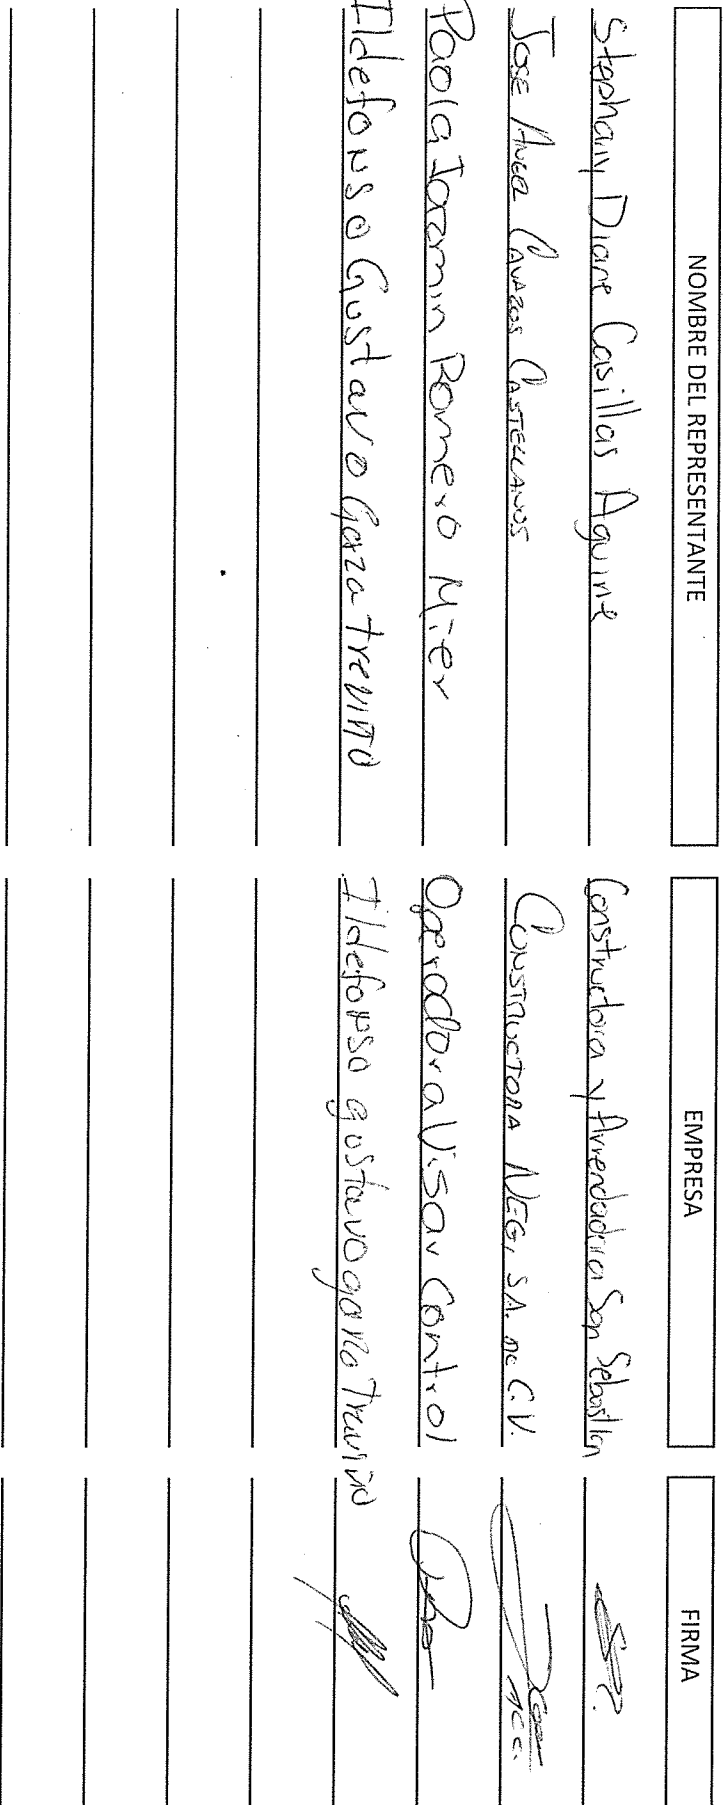 NOMBRE DEL REPRESENTANTE EMPRESA FIRMA
Stephany Diane Casillas Aguirre Constructora y Arrendadora San Sebastian
Jose Angel Cavazos Castellanos CONSTRUCTORA NEG, S.A. DE C.V.
Paola Iazmin Romero Mier Operadora Visar Control
Ildefonso Gustavo Garza treviño Ildefonso gustavo garza Treviño